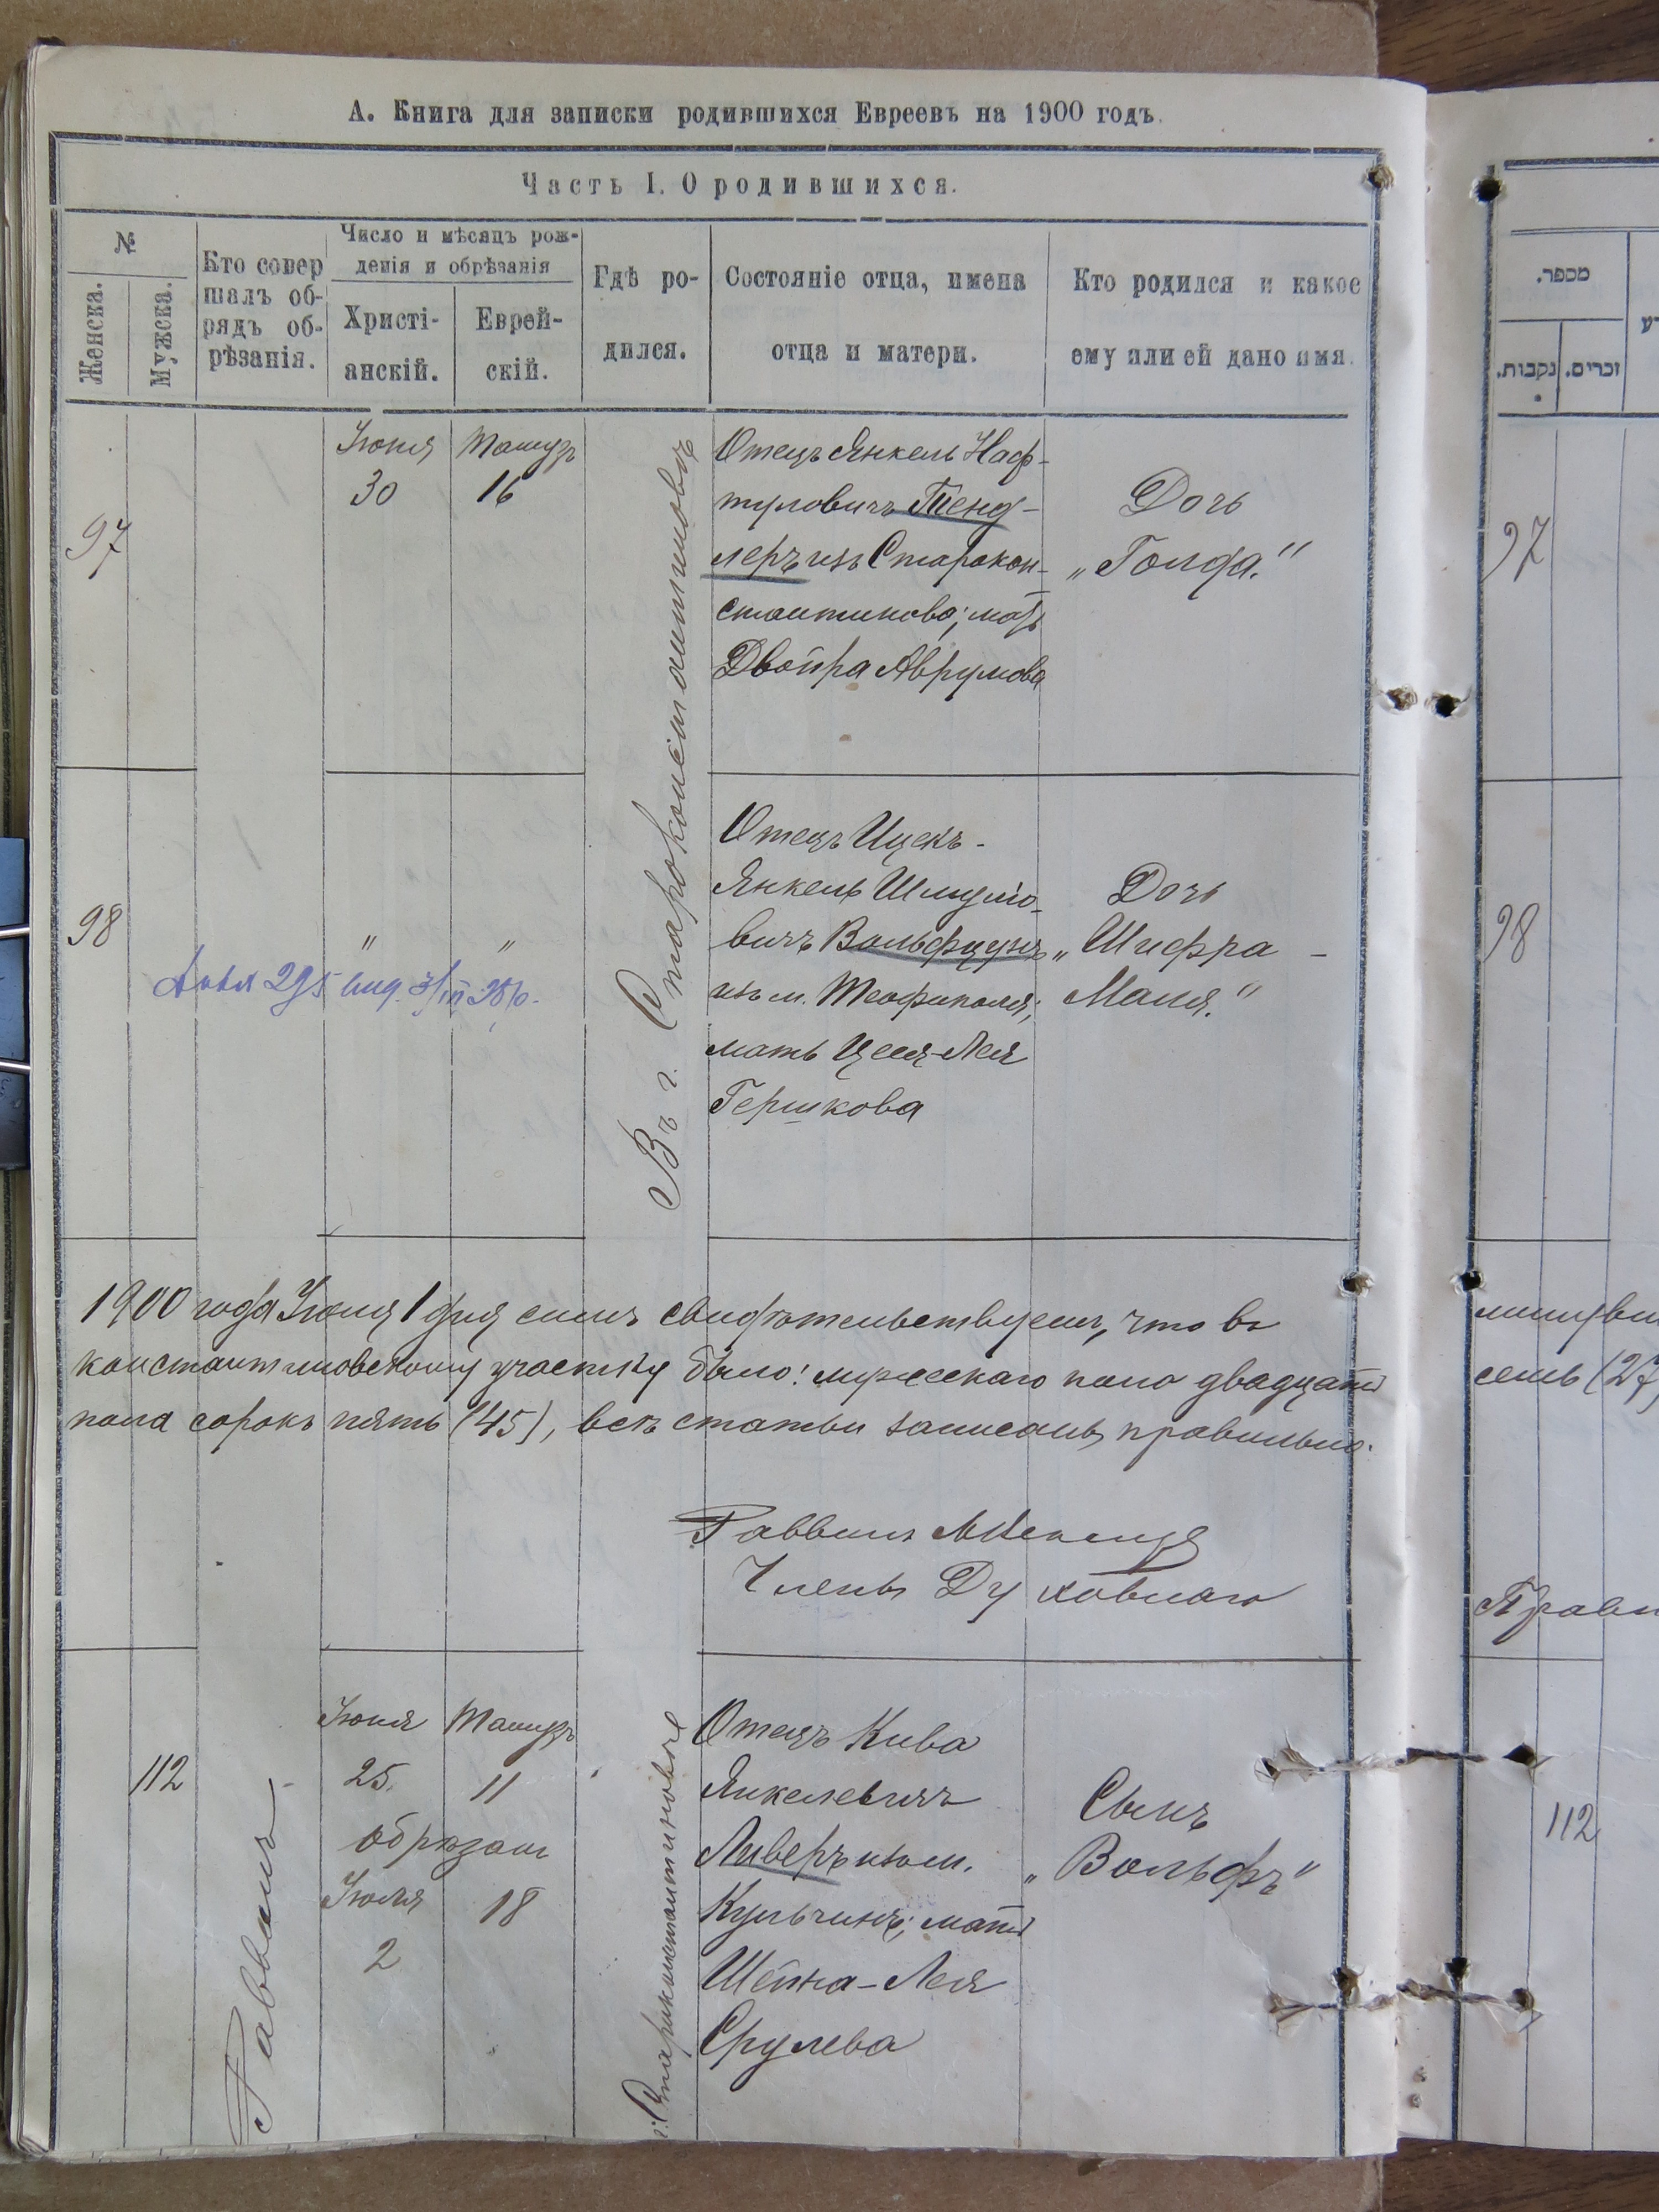 А. Книга для записки родившихся Евреевъ на 1900 годъ.
Часть I. О родившихся.
№
Женска.
Мужска.
Кто совер
шалъ об-
рядъ об-
рѣзанія.
Число и мѣсяцъ рож-
денія и обрѣзанія
Христі-
анскій.
Еврей-
скій.
Гдѣ ро-
дился.
Состояніе отца, имена
отца и матери.
Кто родился и какое
ему или ей дано имя.
97
Іюня
30
Тамузъ
16
Въ г. Староконстантиновѣ
Отецъ Янкель Наф-
туловичъ Тенд-
леръ изъ Старокон-
стантинова; мать
Двойра Аврумова
Дочь
„Голда."
98
"
"
Отецъ Ицекъ-
Янкель Шмулю-
вичъ Вольфцунъ
изъ м. Теофиполя;
мать Цеся-Лея
Гершкова
Дочь
„Шифра -
Маня."
1900 года Іюля 1 дня симъ свидѣтельствуемъ, что въ
константиновскому участку было: мужескаго пола двадцать
пола сорокъ пять (45), всѣ статьи записаны правильно.
Раввинъ
Членъ Духовнаго
112
Раввинъ
Іюня
25.
Тамузъ
11
обрѣзан
Іюля
2
18
г. Староконстантиновѣ
Отецъ Кива
Янкелевичъ
Ливеръ изъ м.
Кульчинъ; мать
Шейна-Лея
Срулева
Сынъ
„Вольфъ"
מספר.
נקבות.
זכרים.
97
98
семь (27)
112